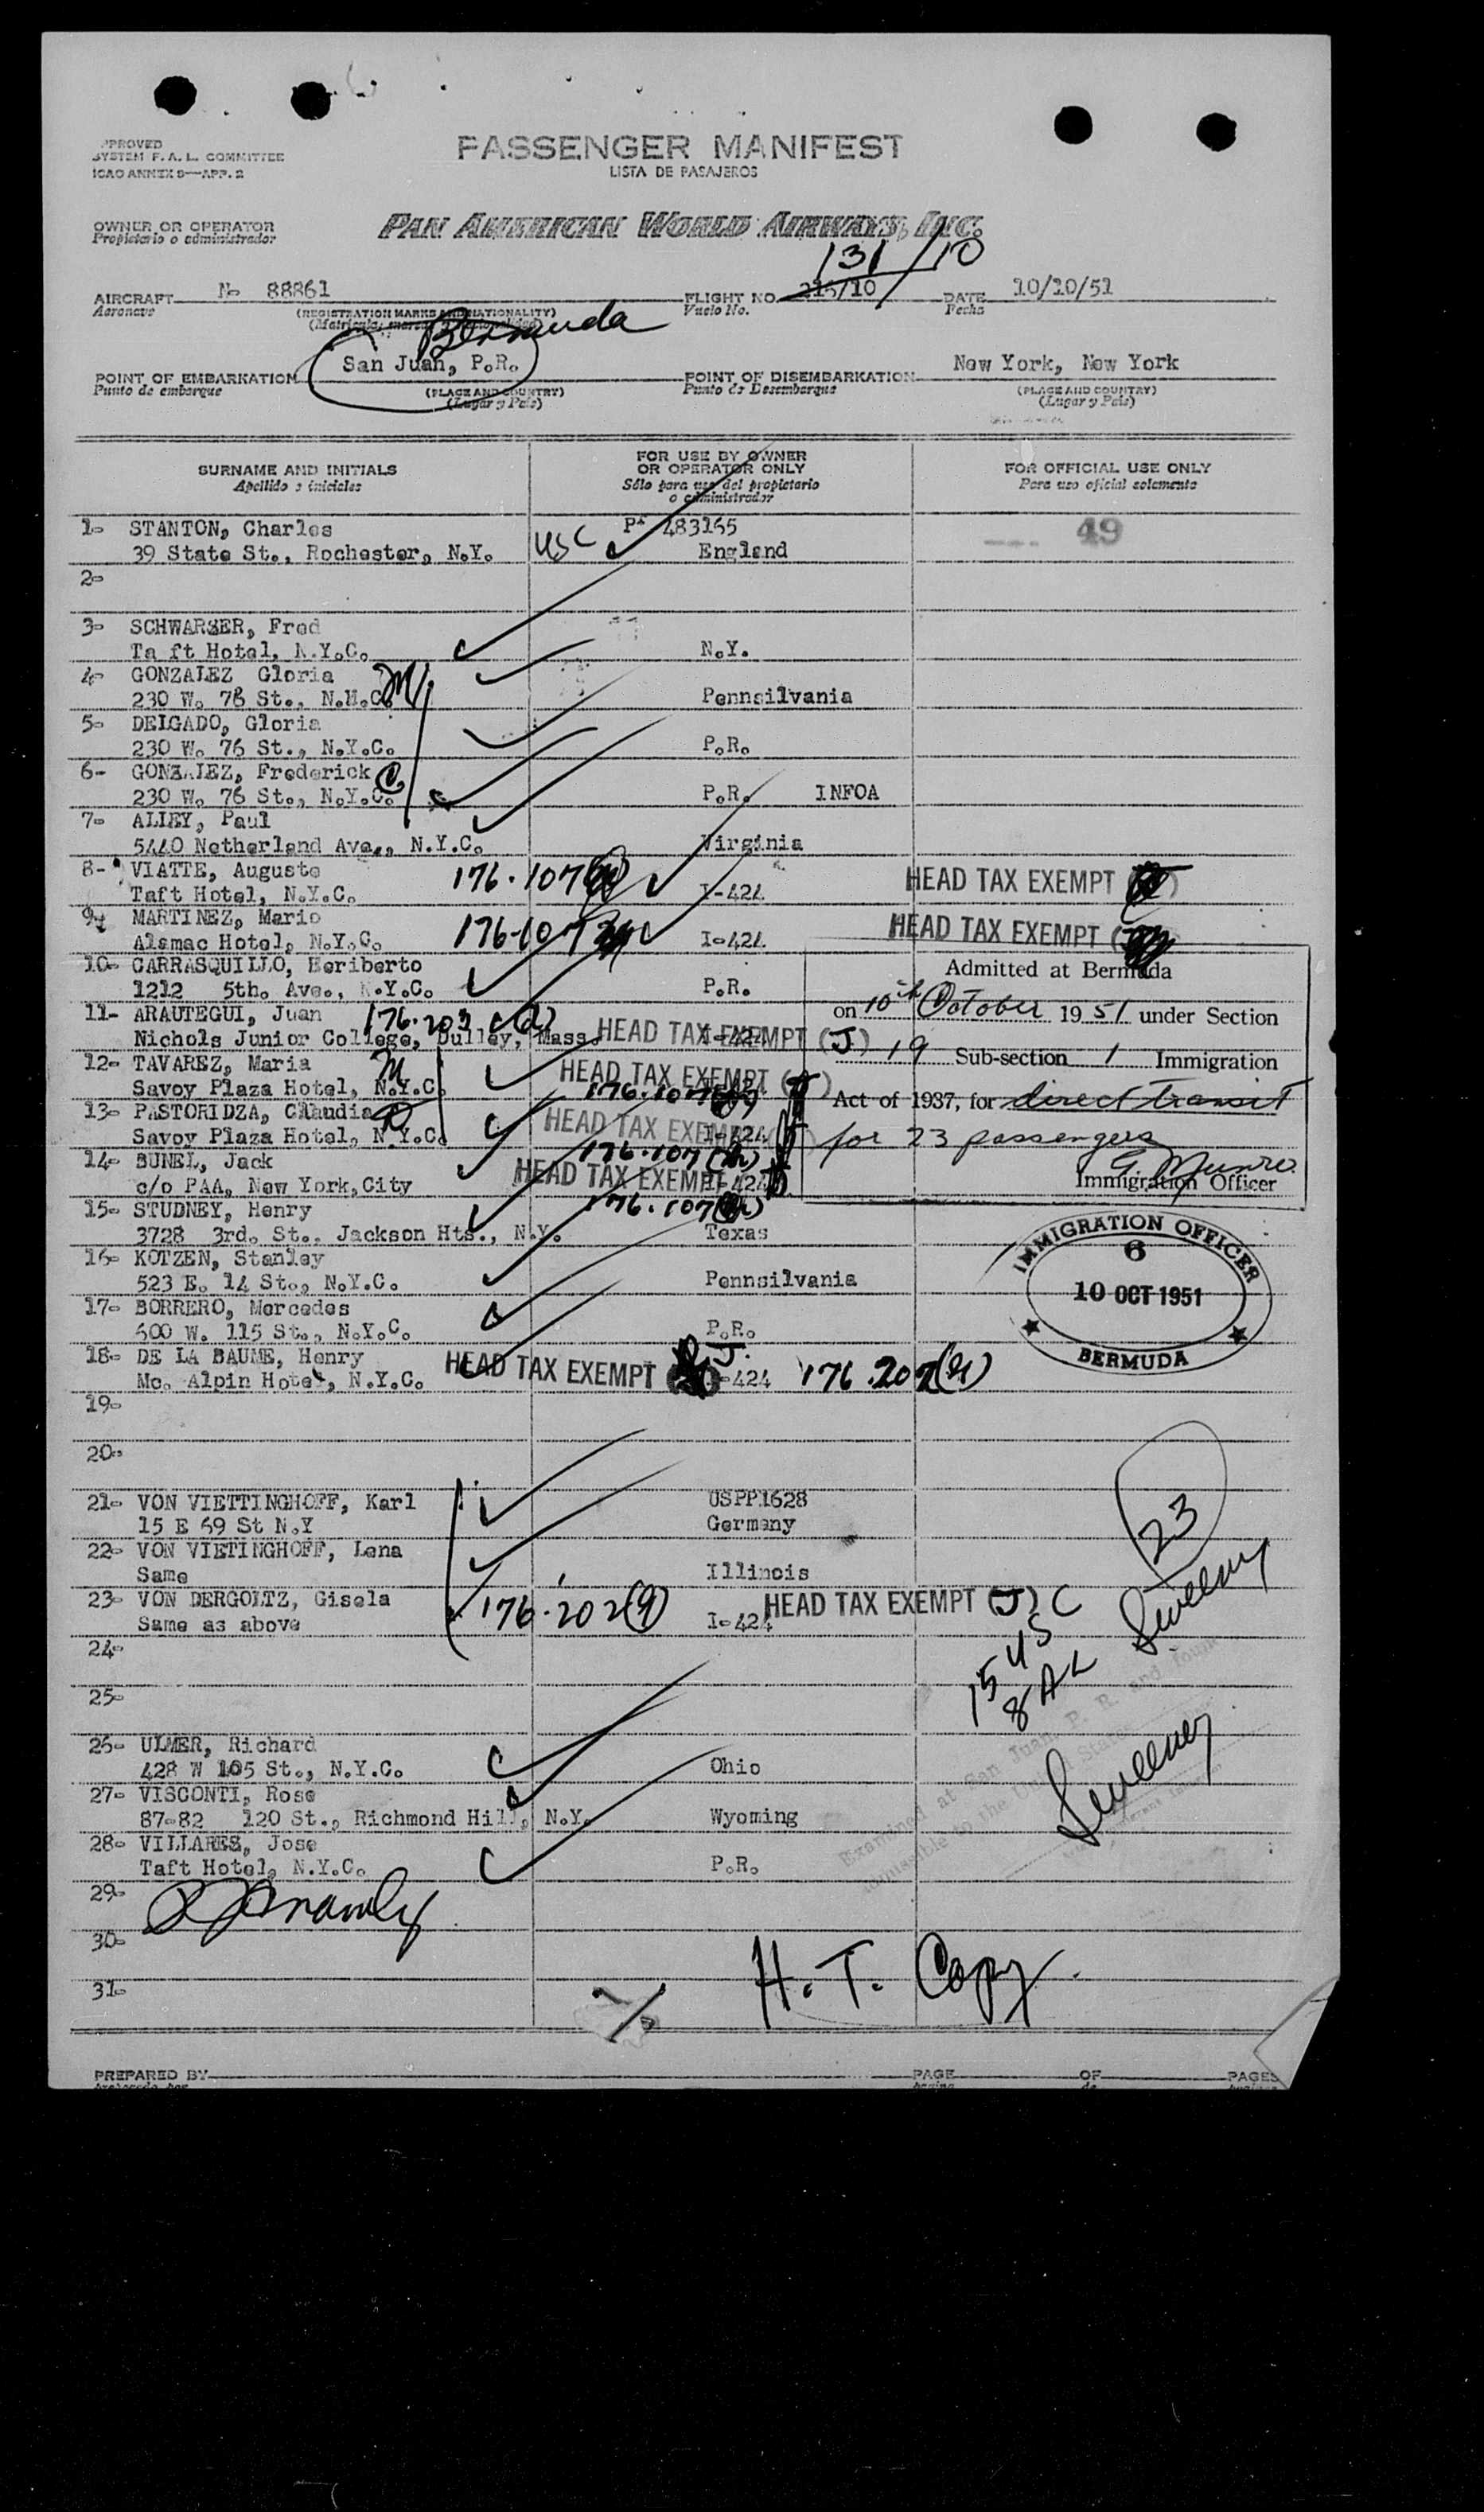 APPROVED
SYSTEM F.A.L. COMMITTEE
ICAO ANNEX 9—APP. 2
PASSENGER MANIFEST
LISTA DE PASAJEROS
OWNER OR OPERATOR
Propietario o administrador
PAN AMERICAN WORLD AIRWAYS, INC.
131/10
AIRCRAFT N- 88861 FLIGHT NO. 215/10 DATE 10/10/51
Aeronave (REGISTRATION MARKS AND NATIONALITY) Vuelo No. Fecha
Bermuda
POINT OF EMBARKATION San Juan, P.R. POINT OF DISEMBARKATION New York, New York
Punto de embarque (PLACE AND COUNTRY) Punto de Desembarque (PLACE AND COUNTRY)
(Lugar y Pais) (Lugar y Pais)
SURNAME AND INITIALS
Apellido e iniciales
FOR USE BY OWNER
OR OPERATOR ONLY
Sólo para uso del propietario
o administrador
FOR OFFICIAL USE ONLY
Para uso oficial solamente
1- STANTON, Charles 483165 49
39 State St., Rochester, N.Y. USC England
2-
3- SCHWARZER, Fred
Ta ft Hotel, N.Y.C. N.Y.
4- GONZALEZ Gloria M
230 W. 76 St., N.M.C. Pennsilvania
5- DELGADO, Gloria
230 W. 76 St., N.Y.C. P.R.
6- GONZALEZ, Frederick C
230 W. 76 St., N.Y.C. P.R. INFOA
7- ALLEY, Paul
5440 Netherland Ave., N.Y.C. Virginia
8- VIATTE, Auguste 176.107 HEAD TAX EXEMPT
Taft Hotel, N.Y.C. I-424
9- MARTINEZ, Mario 176-107 HEAD TAX EXEMPT
Alamac Hotel, N.Y.C. I-424
10- CARRASQUILLO, Heriberto
1212 5th. Ave., N.Y.C. P.R.
Admitted at Bermuda
on 10th October 1951 under Section
19 Sub-section 1 Immigration
Act of 1937, for direct transit
for 23 passengers
G. Munro
Immigration Officer
11- ARAUTEGUI, Juan 176.203
Nichols Junior College, Dulley, Mass. HEAD TAX EXEMPT (J) I-424
12- TAVAREZ, Maria M HEAD TAX EXEMPT
Savoy Plaza Hotel, N.Y.C. 176.107
13- PASTORIDZA, Claudia HEAD TAX EXEMPT
Savoy Plaza Hotel, N.Y.C. I-424 176.107
14- BUNEL, Jack HEAD TAX EXEMPT
c/o PAA, New York, City I-424 176.107
15- STUDNEY, Henry
3728 3rd. St., Jackson Hts., N.Y. Texas
16- KOTZEN, Stanley
523 E. 14 St., N.Y.C. Pennsilvania
17- BORRERO, Mercedes
600 W. 115 St., N.Y.C. P.R.
IMMIGRATION OFFICER
6
10 OCT 1951
BERMUDA
18- DE LA BAUME, Henry HEAD TAX EXEMPT J.
Mc. Alpin Hotel, N.Y.C. I-424
19-
20-
21- VON VIETTINGHOFF, Karl USPP1628
15 E 69 St N.Y Germany
23
22- VON VIETINGHOFF, Lena
Same Illinois
23- VON DERGOLTZ, Gisela 176.202(9) HEAD TAX EXEMPT (J)
Same as above I-424
15 USC
8 AL
Sweeney
24-
25-
Examined at San Juan, P. R. and found
admissible to the United States
Sweeney
26- ULMER, Richard
428 W 105 St., N.Y.C. Ohio
27- VISCONTI, Rose
87-82 120 St., Richmond Hill, N.Y. Wyoming
28- VILLARES, Jose
Taft Hotel, N.Y.C. P.R.
29-
30-
31-
H. T. Copy
PREPARED BY PAGE OF PAGES